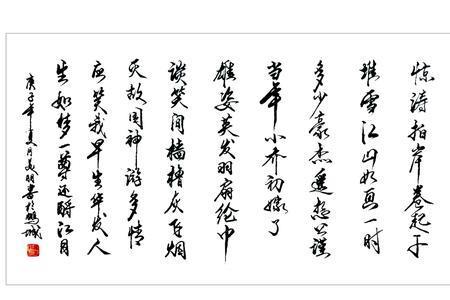 惊涛拍岸卷起千
堆雪江山如画一时
多少豪杰遥想公谨
当年小乔初嫁了
雄姿英发羽扇纶巾
谈笑间樯橹灰飞烟
灭故国神游多情
应笑我早生华发人
生如梦一尊还酹江月
庚子年夏月书于鹏城